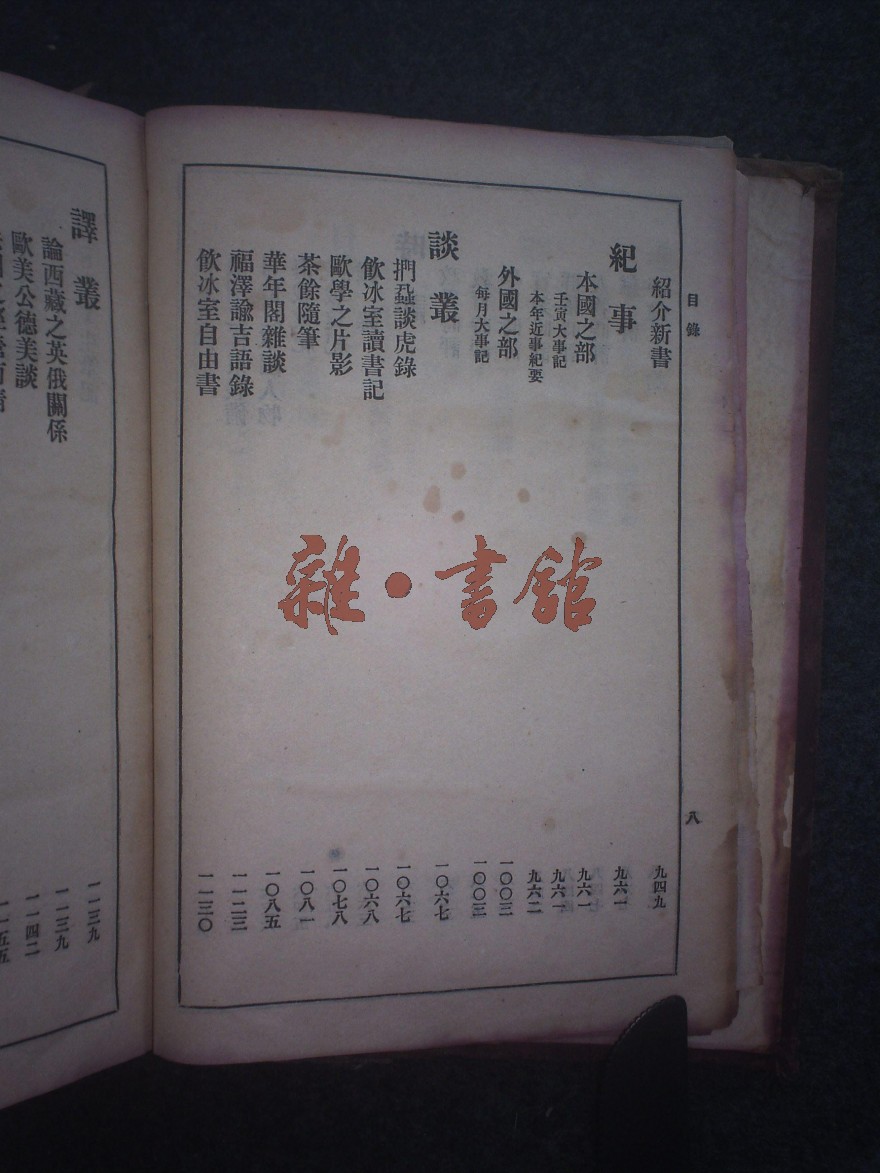 目錄
八
紹介新書 九四九
紀事 九六一
本國之部 九六一
壬寅大事記 九六一
本年近事紀要 九六二
外國之部 一〇〇三
每月大事記 一〇〇三
談叢 一〇六七
捫蝨談虎錄 一〇六七
飲冰室讀書記 一〇六八
歐學之片影 一〇七八
茶餘隨筆 一〇八一
華年閣雜談 一〇八五
福澤諭吉語錄 一一二三
飲冰室自由書 一一三〇
譯叢 一一三九
論西藏之英俄關係 一一三九
歐美公德美談 一一四二
一一五五
雜·書館